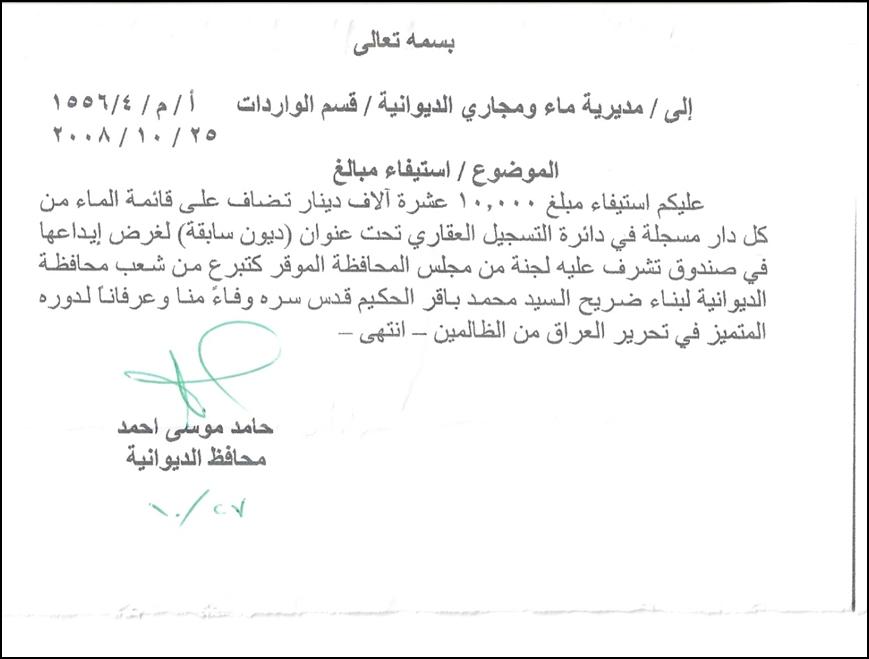 بسمه تعالى
إلى / مديرية ماء ومجاري الديوانية / قسم الواردات أ / م / ١٥٥٦/٤
٢٠٠٨ / ١٠ / ٢٥
الموضوع / استيفاء مبالغ
عليكم استيفاء مبلغ ١٠,٠٠٠ عشرة آلاف دينار تضاف على قائمة الماء من
كل دار مسجلة في دائرة التسجيل العقاري تحت عنوان (ديون سابقة) لغرض إيداعها
في صندوق تشرف عليه لجنة من مجلس المحافظة الموقر كتبرع من شعب محافظة
الديوانية لبناء ضريح السيد محمد باقر الحكيم قدس سره وفاءً منا وعرفاناً لدوره
المتميز في تحرير العراق من الظالمين – انتهى –
حامد موسى احمد
محافظ الديوانية
١٠/٢٧